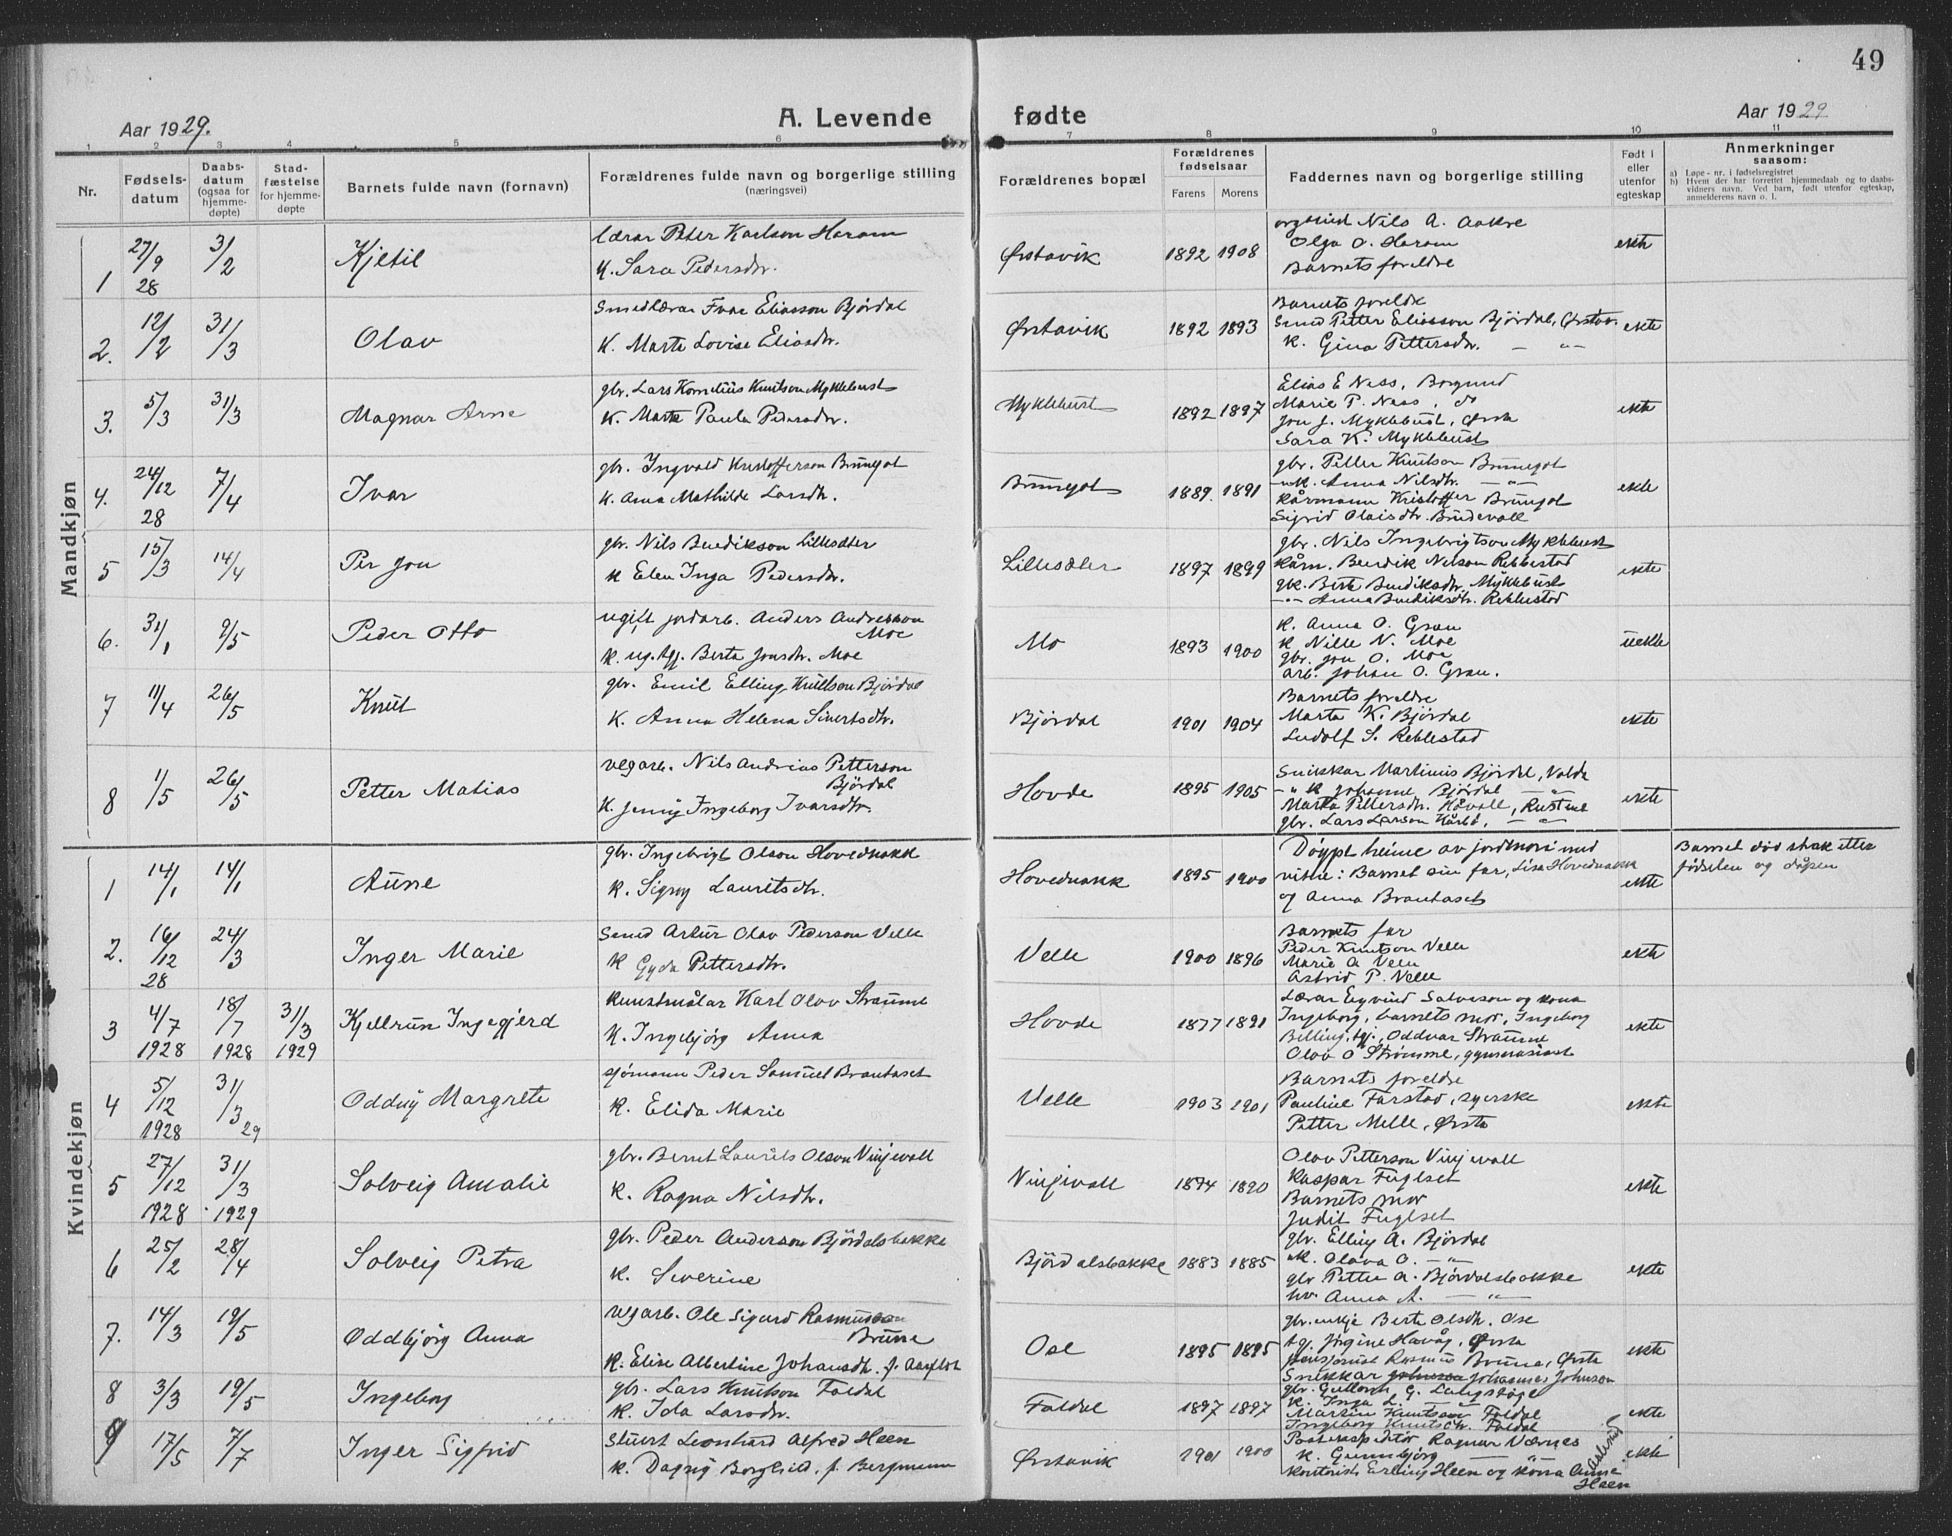 49
Aar 1929.
A. Levende fødte
Aar 1929
1 2 3 4 5 6 7 8 9 10 11
Nr.
Fødsels-
datum
Daabs-
datum
(ogsaa for
hjemme-
døpte)
Stad-
fæstelse
for hjemme-
døpte
Barnets fulde navn (fornavn)
Forældrenes fulde navn og borgerlige stilling
(næringsvei)
Forældrenes bopæl
Forældrenes
fødselsaar
Farens Morens
Faddernes navn og borgerlige stilling
Født i
eller
utenfor
egteskap
Anmerkninger
saasom:
a) Løpe-nr. i fødselsregistret
b) Hvem der har forrettet hjemmedaab og to daabs-
vidners navn. Ved barn, født utenfor egteskap,
anmelderens navn o. l.
Mandkjøn
1 27/9 28 3/2 Kjetil
lærar Peter Karlson Haram
K. Sara Pedersdtr.
Ørstavik 1892 1908
Nils A. Aakre
Olga O. Haram
Barnets foreldre
ekte
2. 12/2 31/3 Olav
Smedlærar Ivar Eliasson Bjørdal
K. Marta Lovise Eliasdtr.
Ørstavik 1892 1893
Barnets foreldr
Smed Petter Eliasson Bjørdal, Ørstav.
K. Gina Pettersdtr. — " —
ekte
3. 5/3 31/3 Magnar Arne
gbr. Lars Kornelius Knutson Myklebust
K. Marta Paula Pedersdtr.
Myklebust 1892 1897
Elias E Nass, Borgund
Marie P. Nass, do
Jon J. Myklebust, Ørsta
Sara K. Myklebust
ekte
4. 24/12 28 7/4 Ivar
gbr. Ingvald Kristofferson Brungot
K. Anna Mathilde Larsdtr.
Brungot 1889. 1891
gbr. Petter Knutson Brungot
K. Anna Nilsdtr. — " —
Kårmann Kristoffer Brungot
Sigrid Olaisdtr. Brudevoll
ekte
5 15/3 14/4 Per Jon
gbr. Nils Bendikson Lillesæter
K Elen Inga Pedersdtr.
Lillesæter 1897 1899
gbr. Nils Ingebrigtson Myklebust
Kårm. Bendik Nilson Rebbestad
gk. Berte Bendiksdtr. Myklebust
— " — Anna Bendiksdtr. Rebbestad
ekte
6. 31/1 9/5 Peder Otto
ugift jordarb. Anders Andresson
Moe
K. ug. tj. Berta Jonsdtr. Moe
Mo 1893 1900
K. Anna O. Grøn
K Nille N. Moe
gbr. Jon O. Moe
arb. Johan O. Grøn.
uekte
7 11/4 26/5 Knut
gbr. Emil Elling Knutson Bjørdal
K. Anna Helena Sivertsdtr.
Bjørdal 1901 1904
Barnets foreldre
Marta K. Bjørdal
Ludolf S. Rebbestad
ekte
8 1/5 26/5 Petter Matias
vegarb. Nils Andreas Petterson
Bjørdal
K. Jenny Ingeborg Ivarsdtr.
Hovde 1895 1905
Snikkar Martinus Bjørdal, Volda
— " K Johanne Bjørdal — " —
Marta Pettersdtr. Håvoll,
gbr. Lars Larson — " —
ekte
Kvindekjøn
1 14/1 14/1 Aune
gbr. Ingebrigt Olson Hovednakk
K. Signy Lauritsdtr.
Hovednakk 1895 1900
Døypt heime av jordmori med
vitne: Barnet sin far, Lisa Hovednakk
og Anna Brautaset
ekte
Barnet død strak etter
fødselen og dåpen
2. 16/12 28 24/3 Inger Marie
Smed Artur Olav Pederson Velle
K Gyda Pettersdtr.
Velle 1900 1896
Barnets far
Peder Knutson Velle
Marie A Velle
Astrid P. Velle
ekte
3 4/7 1928 18/7 1928 31/3 1929 Kjellrun Ingegjerd
Kunstmålar Karl Olav Straume
K. Ingebjørg Anna
Hovde 1877 1891
Lærar Eyvind Salveson og kona
Ingeborg, barnets mor, Ingeborg
Billing, tj., Oddvar Straume
Olav O Strømme, gymnasiast
ekte
4 5/12 1928 31/3 29 Oddny Margrete
sjømann Peder Samuel Brautaset
K. Elida Marie
Velle 1903 1901
Barnets foreldre
Pauline Farstad, syerske
Petter Melle, Ørsta
ekte
5 27/12 1928 31/3 1929 Solveig Amalie
gbr. Bernt Laurits Olson Vinjevoll
K. Ragna Nilsdtr.
Vinjevoll 1894 1890
Olav Petterson Vinjevoll
Kaspar Fuglset
Barnets mor
Judit Fuglset
ekte
6 25/2 28/4 Solveig Petra
gbr. Peder Anderson Bjørdalsbakke
K. Severine
Bjørdalsbakke 1883 1885
gbr. Elling A. Bjørdal
K. Olava O. — " —
gbr Petter A. Bjørdalsbakke
hv. Anna A. — " —
ekte
7. 14/3 19/5 Oddbjørg Anna
vegarb. Ole Sigurd Rasmusson
Brune
K. Elise Albertine Johansdtr. f. Aarflot
Ose 1895 1895
gbr.enkje Berte Olsdtr. Ose
tj. Jørgine Havåg, Ørsta
pensjonist Rasmus Brune, Ørsta
Snikkar Johannes Johnson
ekte
8 3/3 19/5 Ingeborg
gbr. Lars Knutson Foldal
K. Ida Larsdtr.
Foldal 1897 1897
K. Inga L. — " —
Martin Knutson Foldal
Ingeborg Knutsdtr. Foldal
ekte
9 17/5 7/7 Inger Sigfrid
Stuert Leonhard Alfred Heen
K. Dagny Borghild, f. Bergmann
Ørstavik 1901 1900
Postekspeditør Ragnar Værnes
K. Gunnbjørg —
kontorist Erling Heen og kona Anna
Heen
ekte